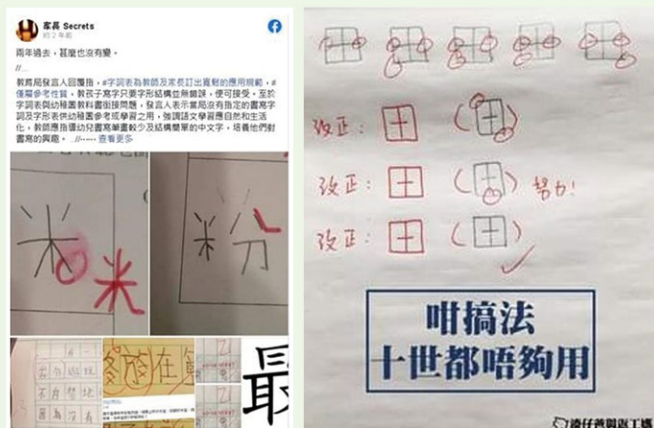 家長 Secrets
約 2 年前
兩年過去，甚麼也沒有變。
//...
教育局發言人回覆指，#字詞表為教師及家長訂出寬鬆的應用規範，#
僅屬參考性質，教孩子寫字只要字形結構並無錯誤，便可接受。至於
字詞表與幼稚園教科書銜接問題，發言人表示當局沒有指定的書寫字
詞及字形表供幼稚園參考或學習之用，強調語文學習應自然和生活
化，教師應指導幼兒書寫筆畫較少及結構簡單的中文字，培養他們對
書寫的興趣。 //⋯⋯ 查看更多
米
米
粉
在
最
田 田 田 田 田
改正： 田 （田）
改正： 田 （田） 努力！
改正： 田 （田）
咁搞法
十世都唔夠用
湊仔爸與返工媽